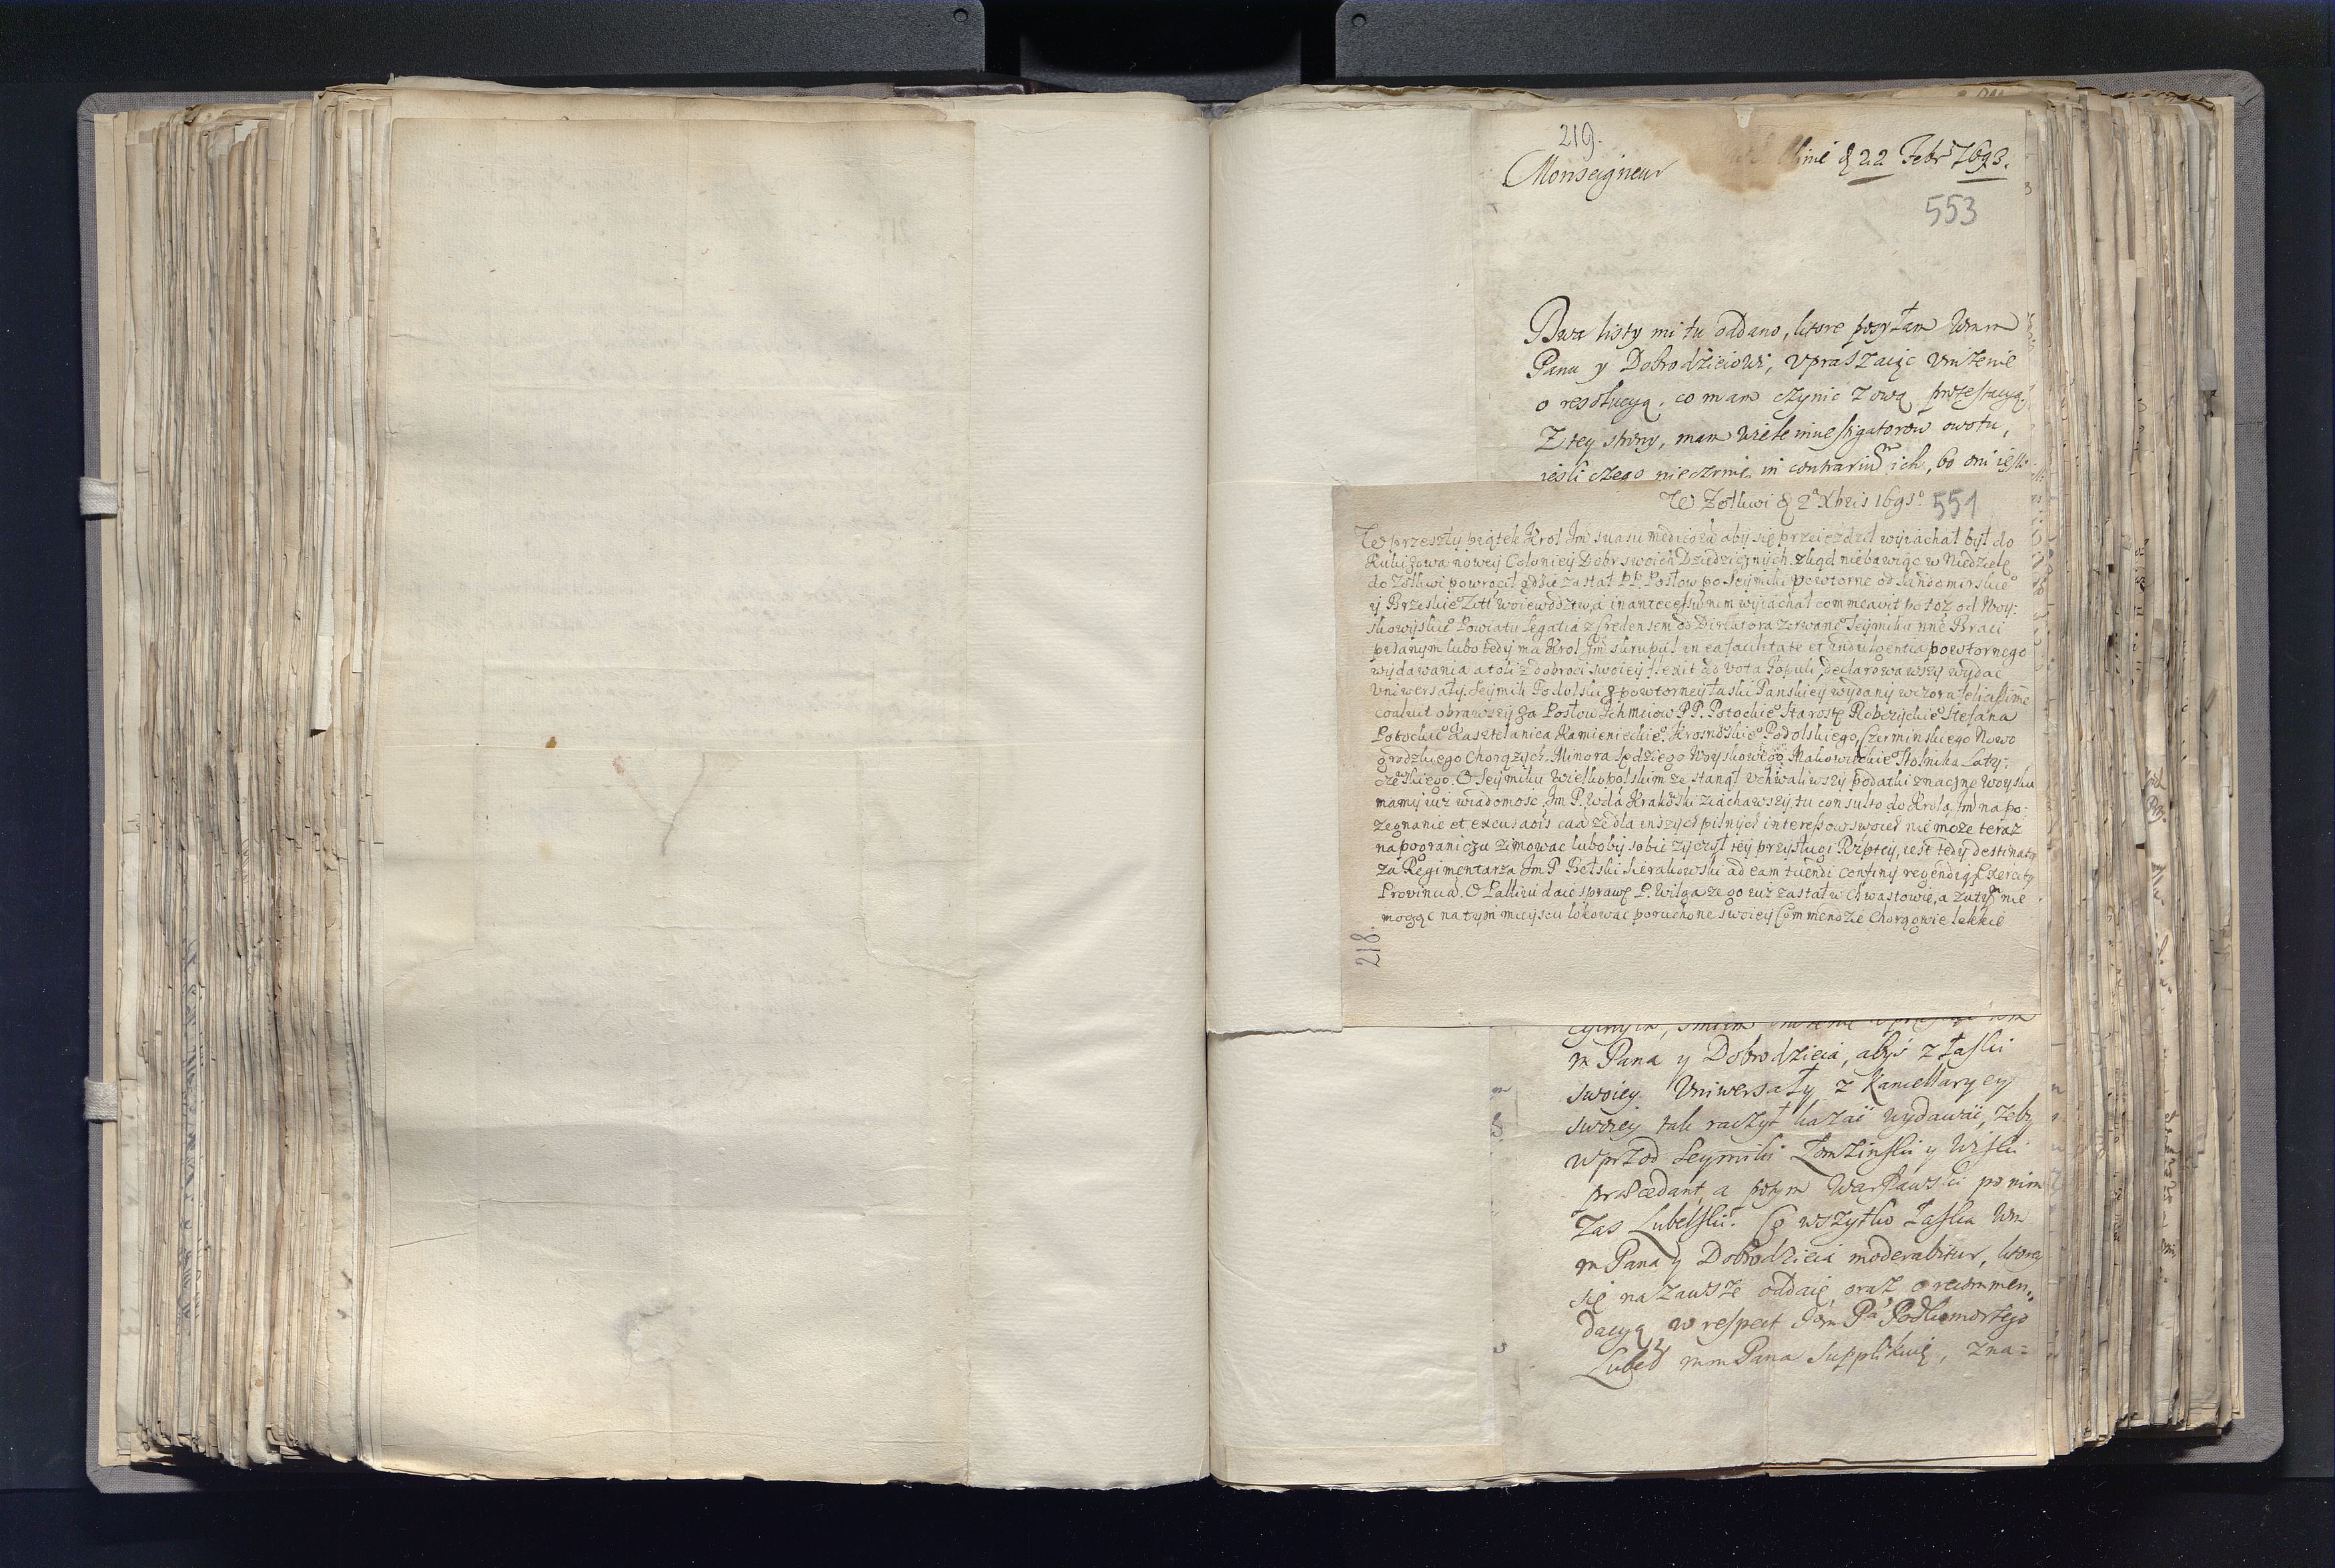 219.
Monseigneur
22 Febr 1693.
553
Dwa listy mi tu oddano, ktore posyłam Wmm
Panu y Dobrodzieiowi, Upraszaiąc Uniżenie
o resolucyą, co mam czynic z ową protestacyą.
Z tey strony, mam wiele investigatorow owotu,
iesli czego nieczynię in contrarium ich, bo oni iesli
W Zołkwi d 2ª Xbris 1693º 551
W przeszły piątek Krol Jm suasu medicow aby się przeiezdzał wyiachał był do
Kukizowa nowey Coloniey Dobr swoich Dziedzicznych, zkąd niebawiąc w Niedzielę
do Zołkwi powrocił gdzie zastał PP. Posłow po Seymiki powtorne od Sandomirskieº
y Brzeskieº Litt Woiewodztwa, in antecessum nem wyiachał commeavit po toż od Woy:
skowyskieº Powiatu Legatia z Credensem od Direktora zerwaneº Seymiku nne Braci
pisanym lubo tedy ma Krol Jm skrupuł in ea facilitate et indulgentia powtornego
wydawania atoli z dobroci swoiey flexit ad vota Populi, declarowawszy wydac
Uniwersały. Seymik Podolski z powtorney łaski Panskiey wydany wczora felicissime
coaluit obrawszy za Posłow Ichmciow PP. Potockieº Starostę Robczyckieº Stefana
Potockieº Kasztelanica Kamienieckieº, Krosnoskieº Podolskiego, Czerminskiego Nowo
grodzkiego Chorążych. Minora Sędziego Woyskowego Makowieckieº Stolnika Laty:
czeskiego. O Seymiku Wielkopolskim ze stanął uchwaliwszy podatki znaczne Woysku
mamy iuż wiadomosc. Jm P. Wda Krakoski ziachawszy tu consulto do Krola Jm na po:
zegnanie et excusaois caa że dla inszych pilnych interessow swoich nie może teraz
na pograniczu zimowac luboby sobie życzył tey przysługi Rzptey, iest tedy destinatus
za Regimentarza Jm P Bełski Sierakowski ad eam tuendi confiny regendiq Exercitus
Provincia. O Pallieu daie sprawę P. Wilga ze go iuż zastał w Chwastowie, a zatym nie
mogąc na tym mieyscu lokowac poruczone swoiey Commendzie Chorągwie lekkie
218.
m Pana y Dobrodzieia, abyś z łaski
swoiey Uniwersały z Kancellaryey
swoiey tak raczył kazac wydawac, żeby
wprzod Seymiki Łomżinski y Wiski
praecedant, a potym Warszawski po nim
zas Lubelski. Co wszytko łaska Wm
m Pana y Dobrodzieia moderabitur, ktorey
się na zawsze oddaię, oraz o recommen:
dacyą w respect Jom Pª Podkomorzego
Lubel mm Pana Supplikuię, zna=